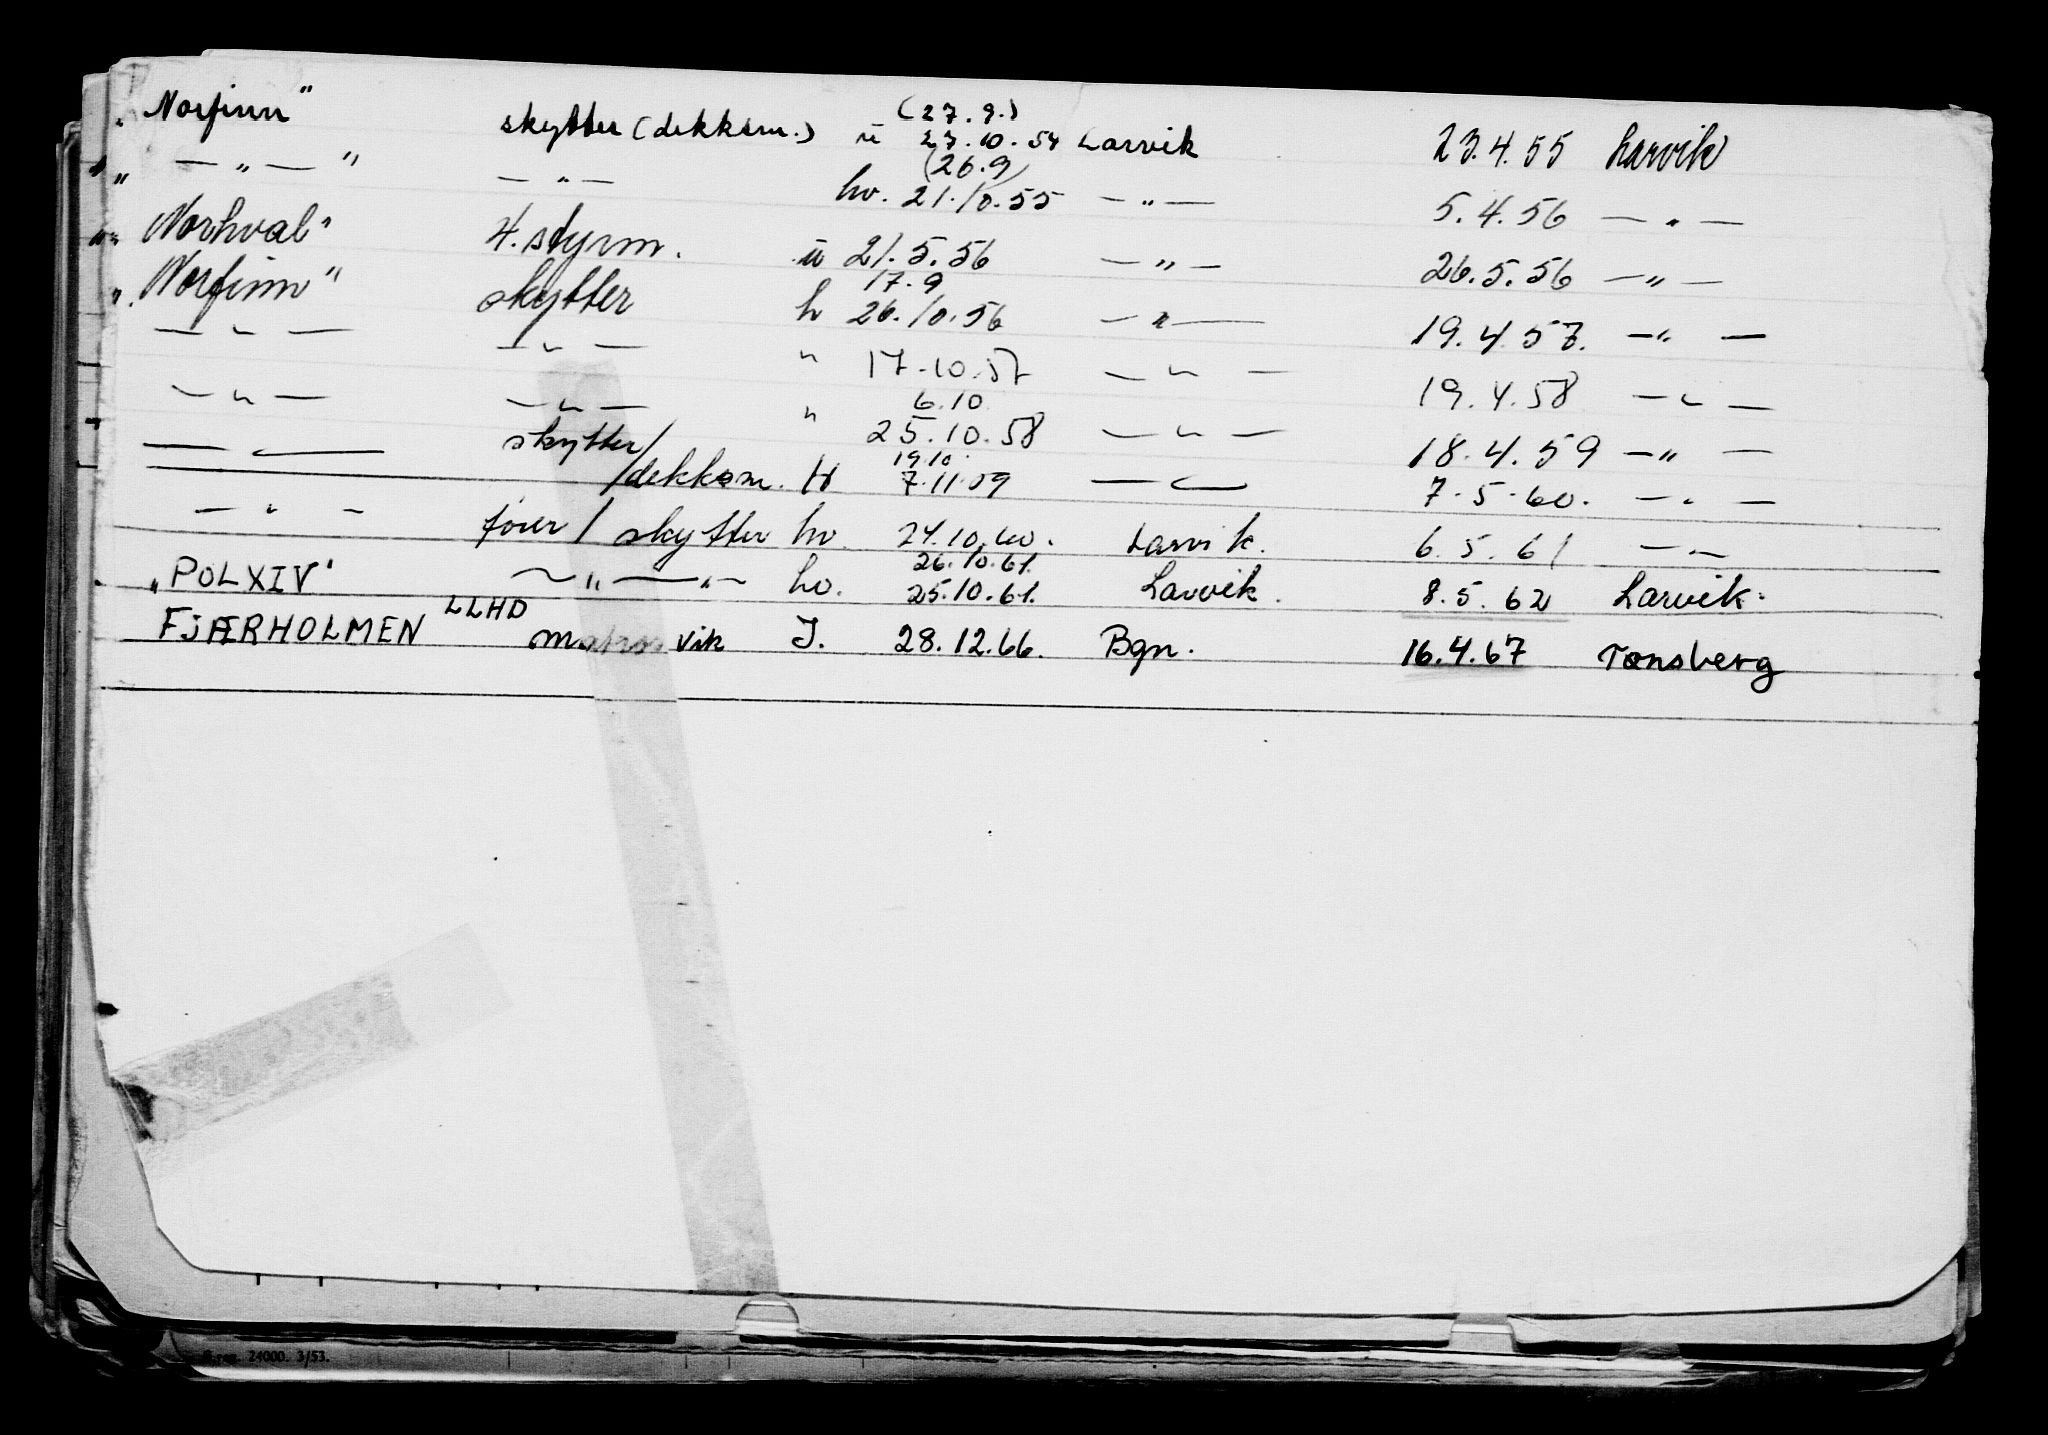 "Norfinn" skytter (dekksm.) u (27.9.) 27.10.54 Larvik 23.4.55 Larvik
" — " — " — " — hv. (26.9) 21.10.55 — " — 5.4.56 — " —
"Norhval" 4. styrm. u 21.5.56 — " — 26.5.56 — " —
"Norfinn" skytter h 17.9 26.10.56 — " — 19.4.57. — " —
— " — — " — " 17.10.57 — " — 19.4.58 — " —
— " — — " — " 6.10 25.10.58 — " — 18.4.59 — " —
— " — skytter/dekksm. H 19.10. 7.11.59 — " — 7.5.60. — " —
— " — fører / skytter hv. 24.10.60. Larvik. 6.5.61 — " —
"POLXIV" — " — " — hv. 26.10.61. 25.10.61. Larvik. 8.5.62 Larvik.
FJÆRHOLMEN LLHD matros vik J. 28.12.66. Bgn. 16.4.67 Tønsberg
24000. 3/53.